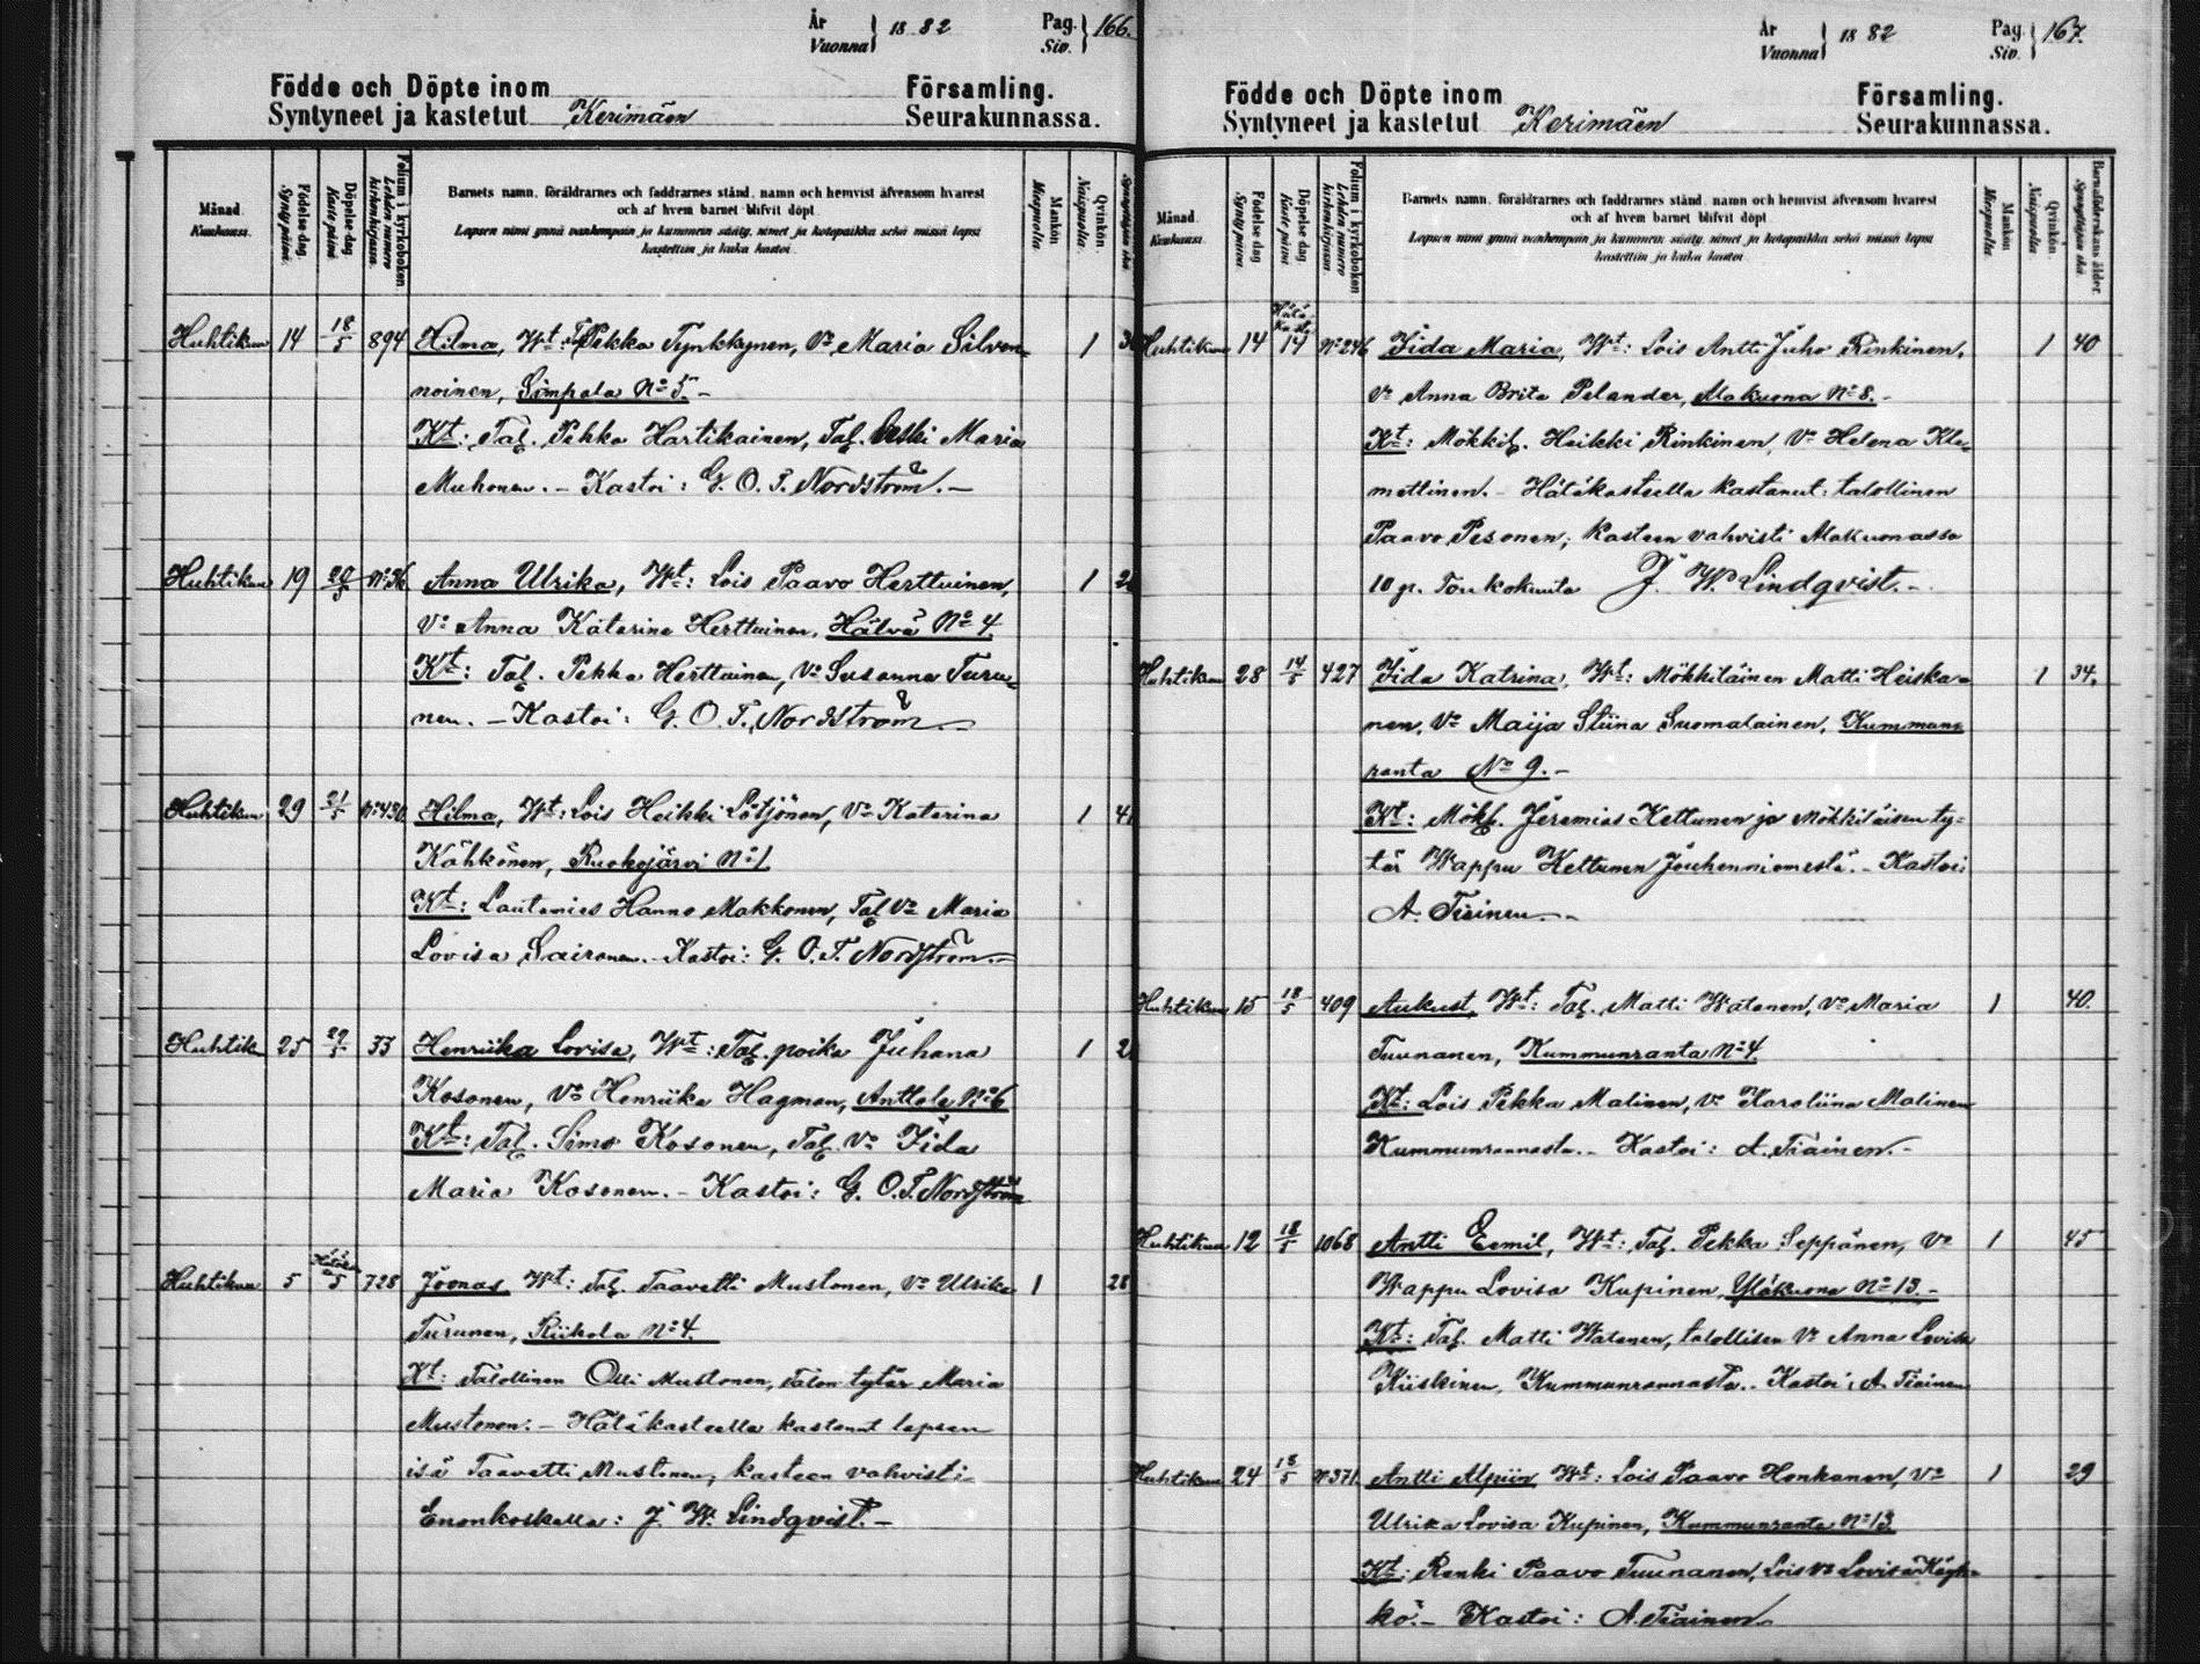 År
Vuonna } 1882 Pag.
Siv. } 166.
Födde och Döpte inom Församling.
Syntyneet ja kastetut Kerimäen Seurakunnassa.
Månad.
Kuukausi.
Födelse dag
Syntypäivä.
Döpelse dag
Kaste päivä
Folium i kyrkoboken
Lehden numero
kirkonkirjassa.
Barnets namn, föräldrarnes och faddrarnes stånd, namn och hemvist äfvensom hvarest
och af hvem barnet blifvit döpt
Lapsen nimi ynnä vanhempain ja kummein sääty, nimet ja kotopaikka sekä missä lapsi
kastettiin ja kuka kastoi
Mankön
Miespuolia
Qvinkön
Naispuolia.
Huhtikuu 14 18/5 894 Hilma, Wt: Tal. Pekka Tynkkynen, Vo Maria Silven-
noinen, Simpala No 5. -
Kt: Tal. Pekka Hartikainen, Tal. leski Maria
Muhonen. - Kastoi: G. O. T. Nordström. -
1
Huhtikuu 19 20/5 No 36 Anna Ulrika, Wt: Lois Paavo Herttuinen,
Vo Anna Katarina Herttuinen, Hälvä No 4.
Kt: Tal. Pekka Herttuinen, Vo Susanna Turu-
nen. - Kastoi: G. O. T. Nordström. -
1
Huhtikuu 29 21/5 No 430 Hilma, Wt: Lois Heikki Lötjönen, Vo Katarina
Kähkönen, Ruokojärvi No 1.
Kt: Lautamies Hanno Makkonen, Tal. Vo Maria
Lovisa Sairanen. - Kastoi: G. O. T. Nordström. -
1 41
Huhtik 25 29/5 33 Henriika Lovisa, Wt: Tal. poika Juhana
Kosonen, Vo Henriika Hagman, Anttola No 6
Kt: Tal. Simo Kosonen, Tal. Vo Iida
Maria Kosonen. - Kastoi: G. O. T. Nordström
1
Huhtikuu 5 5 728 Joonas, Wt: Tal. Taavetti Mustonen, Vo Ulrika
Turunen, Riikola No 4.
Kt: Talollinen Olli Mustonen, Talon tytär Maria
Mustonen. - Hätäkasteella kastanut lapsen
isä Taavetti Mustonen, kasteen vahvisti
Enonkoskella: J. W. Lindqvist. -
1 28
År
Vuonna } 1882 Pag.
Siv. } 167.
Födde och Döpte inom Församling.
Syntyneet ja kastetut Kerimäen Seurakunnassa.
Månad.
Kuukausi.
Födelse dag
Syntypäivä
Döpelse dag
Kaste päivä
Folium i kyrkoboken
Lehden numero
kirkonkirjassa
Barnets namn, föräldrarnes och faddrarnes stånd, namn och hemvist äfvensom hvarest
och af hvem barnet blifvit döpt
Lapsen nimi ynnä vanhempain ja kummein sääty, nimet ja kotopaikka sekä missä lapsi
kastettiin ja kuka kastoi
Mankön
Miespuolia
Qvinkön
Naispuolia
Barnaföderskans ålder.
Synnyttäjän ikä
Huhtikuu 14 Hätä Kaste 14 No 246 Iida Maria, Wt: Lois Antti Juho Rinkinen,
Vo Anna Brita Pelander, Makuona No 8. -
Kt: Mökkil. Heikki Rinkinen, Vo Helena Kle-
mettinen. - Hätäkasteella kastanut: talollinen
Paavo Pesonen; kasteen vahvisti Makuonassa
10 p. Toukokuuta J. W. Lindqvist. -
1 40
Huhtikuu 28 14/5 427 Iida Katrina, Wt: Mökkiläinen Matti Heiska-
nen, Vo Maija Stiina Suomalainen, Kummun-
ranta No 9. -
Kt: Mökl. Jeremias Kettunen ja Mökkiläisen ty-
tär Wappu Kettunen Jouhenniemestä. - Kastoi:
A. Tiainen. -
1 34.
Huhtikuu 15 18/5 409 Aukust, Wt: Tal. Matti Watanen, Vo Maria
Tuunanen, Kummunranta No 4.
Kt: Lois Pekka Malinen, Vo Karoliina Malinen
Kummunrannasta. - Kastoi: A. Tiainen. -
1 40.
Huhtikuu 12 18/5 1068 Antti Eemil, Wt: Tal. Pekka Seppänen, Vo
Wappu Lovisa Kupinen, Yläkuona No 13. -
Kt: Tal. Matti Watanen, talollisen Vo Anna Lovisa
Kiiskinen, Kummunrannasta. - Kastoi: A. Tiainen
1 45
Huhtikuu 24 18/5 No 371 Antti Alpiin, Wt: Lois Paavo Honkanen, Vo
Ulrika Lovisa Kupinen, Kummunranta No 13
Kt: Renki Paavo Tuunanen, Lois Vo Lovisa
kö. - Kastoi: A. Tiainen
1 29